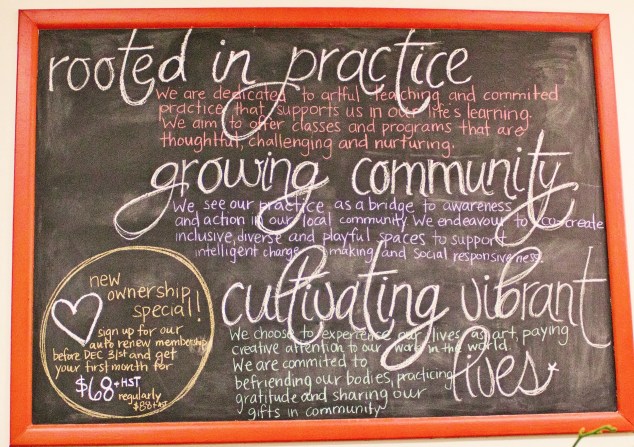 rooted in practice
We are dedicated to artful teaching and commited
practice that supports us in our life's learning.
We aim to offer classes and programs that are
thoughtful, challenging and nurturing.
growing community
We see our practice as a bridge to awareness
and action in our local community. We endeavour to co-create
inclusive, diverse and playful spaces to support
intelligent change making and social responsiveness.
cultivating vibrant
lives
We choose to experience our lives as art, paying
creative attention to our work in the world.
We are commited to
befriending our bodies, practicing
gratitude and sharing our
gifts in community
new
ownership
special!
sign up for our
auto renew membership
before DEC 31st and get
your first month for
$68+HST
regularly
$88+HST